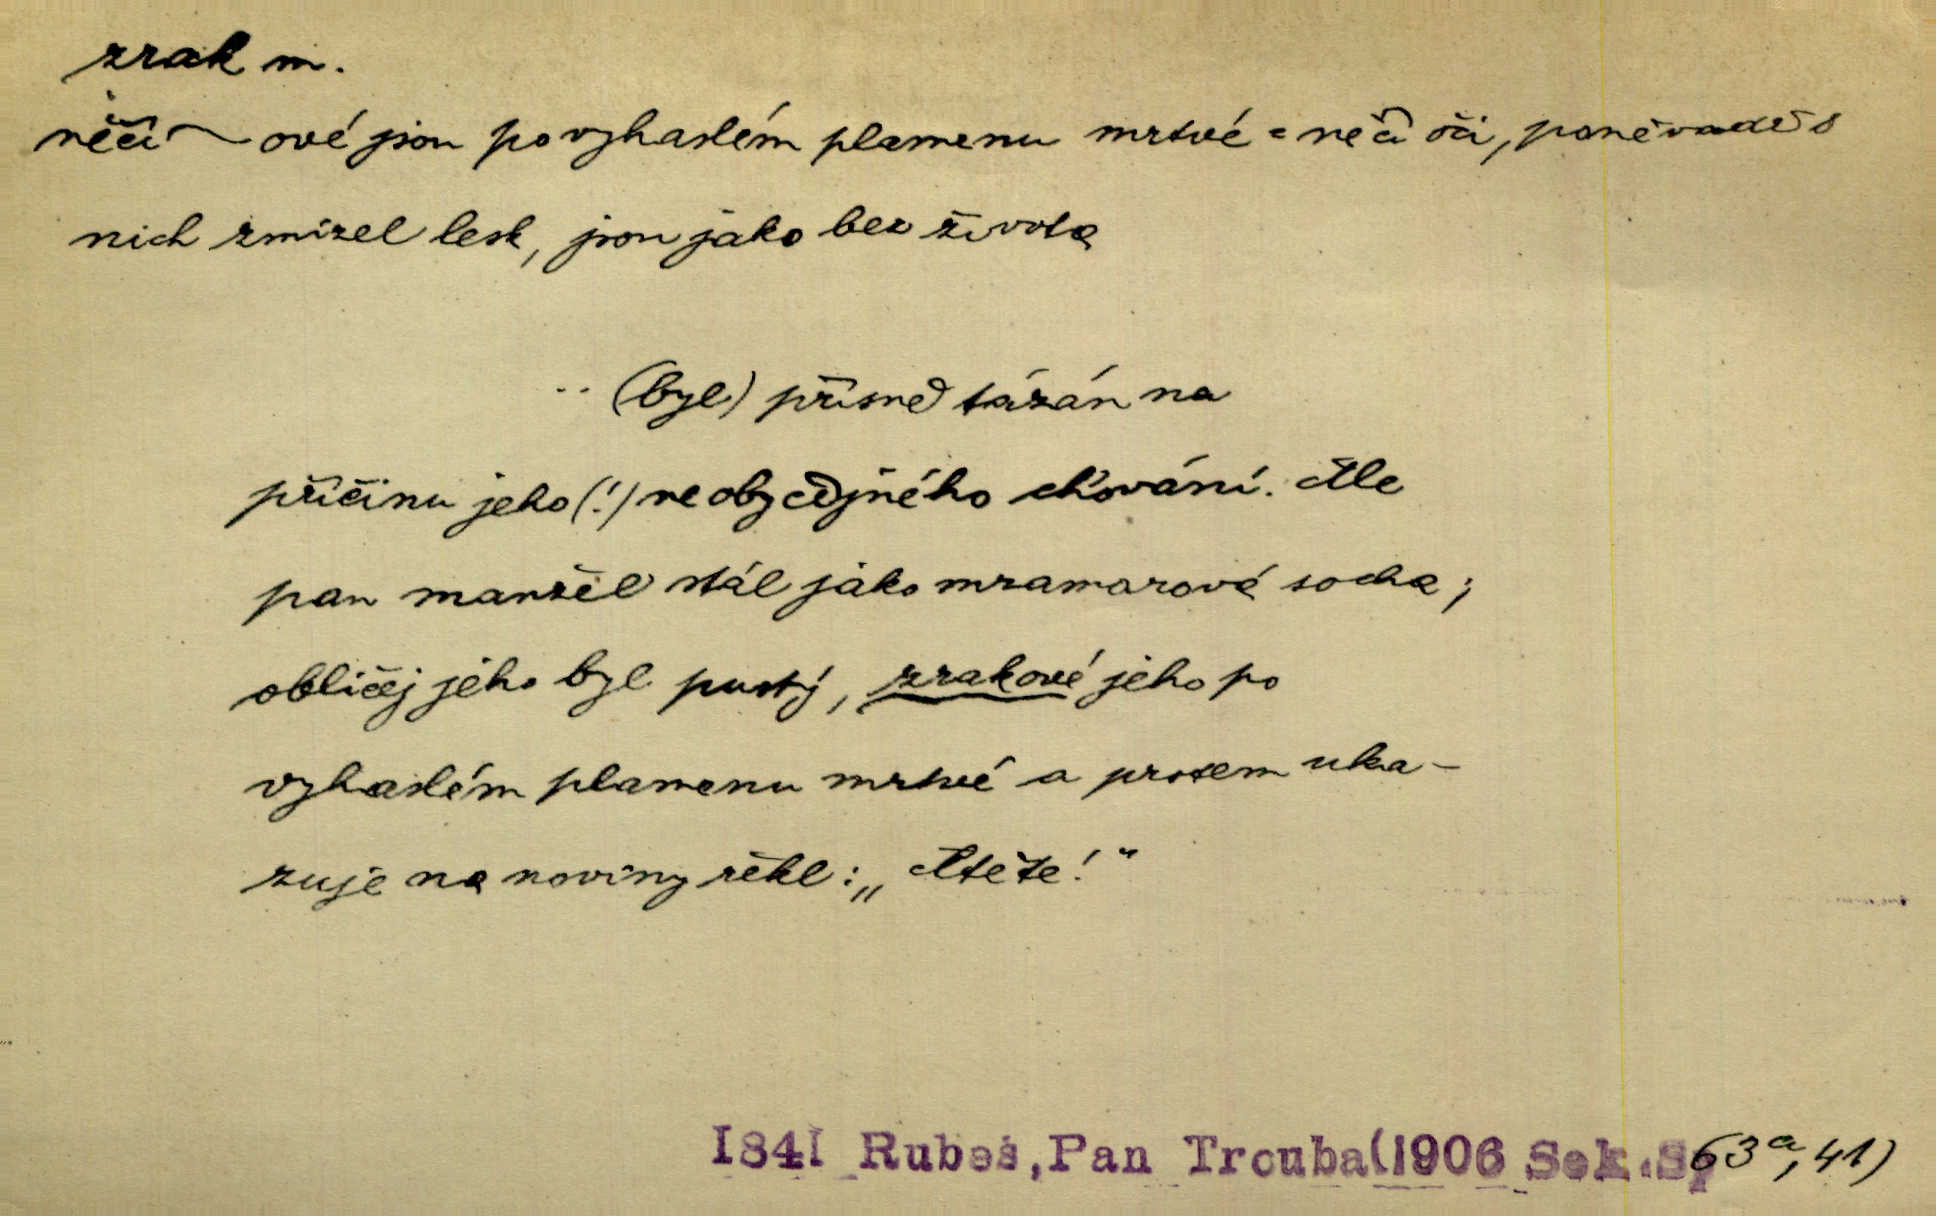 zrak m.
něčí ~ové jsou po vyhaslém plamenu mrtvé = něčí oči, poněvadž s
nich zmizel lesk, jsou jako bez života
.. (byl) přísně tázán na
příčinu jeho (!) neobyčejného chování. Ale
pan manžel stál jako mramorová socha;
obličej jeho byl pustý, zrakové jeho po
vyhaslém plamenu mrtvé a prstem uka-
zuje na noviny řekl: „Čtěte!“
1841 Rubeš, Pan Trouba (1906 Seb. Sp 63a, 41)